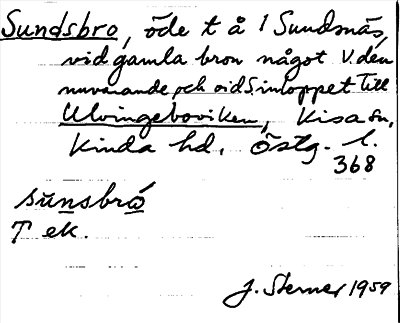 Sundsbro, öde t å 1 Sundsnäs,
vid gamla bron något V. den
nuvarande och vid S. inloppet till
Ulvingeboviken, Kisa sn,
Kinda hd. Östg. l.
368
sŭnsbró
T ek.
J. Sterner 1959